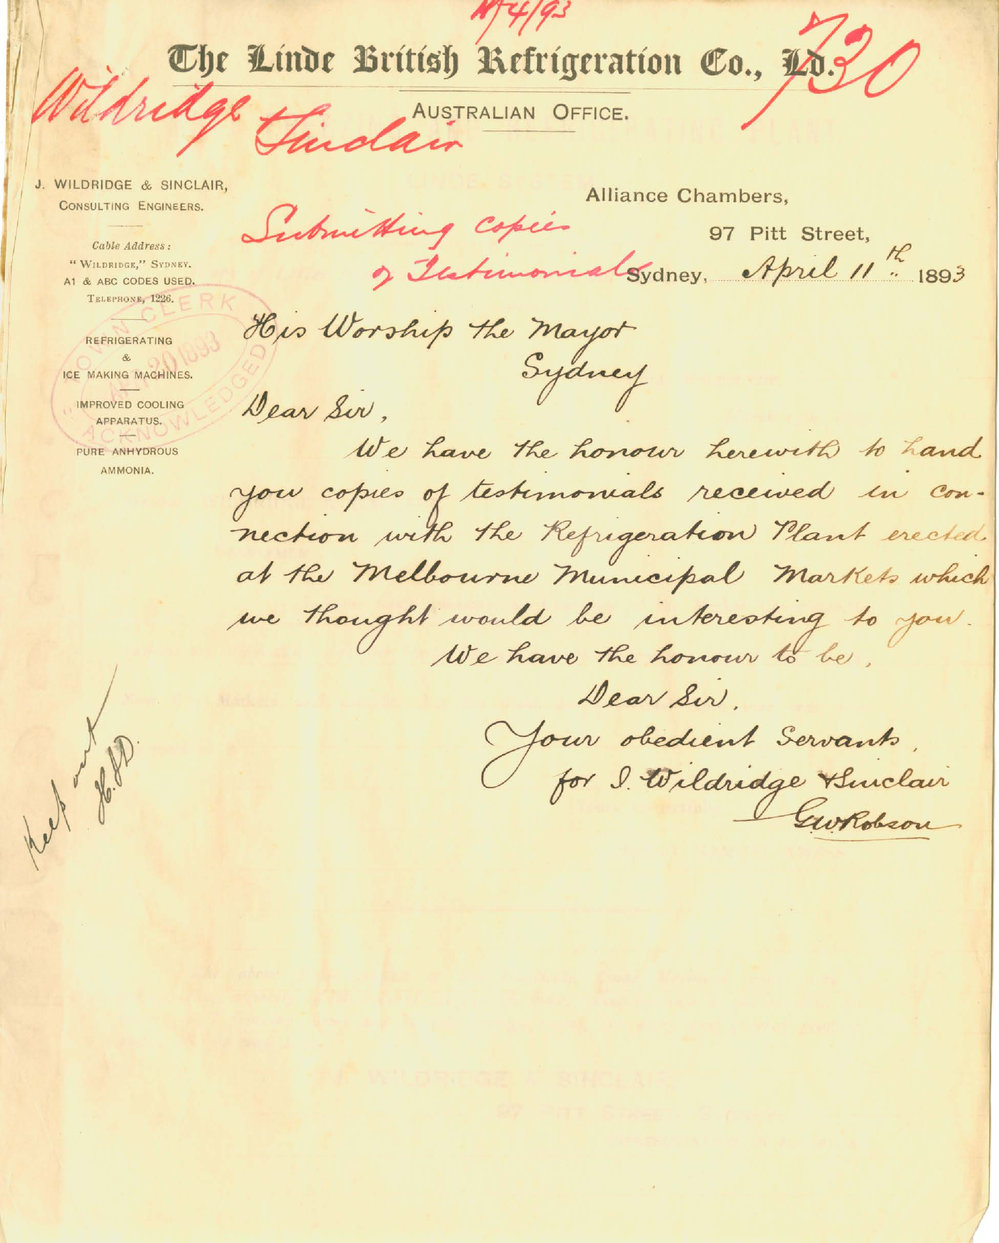 11/4/93
The Linde British Refrigeration Co., Ld.
730
Wildridge
Sinclair
AUSTRALIAN OFFICE.
J. WILDRIDGE & SINCLAIR,
CONSULTING ENGINEERS.
Cable Address:
"WILDRIDGE," SYDNEY.
A1 & ABC CODES USED.
TELEPHONE, 1226.
REFRIGERATING
&
ICE MAKING MACHINES.
IMPROVED COOLING
APPARATUS.
PURE ANHYDROUS
AMMONIA.
TOWN CLERK
20 1893
ACKNOWLEDGED
Alliance Chambers,
97 Pitt Street,
Submitting copies
of Testimonials
Sydney, April 11th 1893
His Worship the Mayor
Sydney
Dear Sir,
We have the honour herewith to hand
you copies of testimonials received in con-
nection with the Refrigeration Plant erected
at the Melbourne Municipal Markets which
we thought would be interesting to you.
We have the honour to be,
Dear Sir,
Your obedient Servants,
for J. Wildridge & Sinclair
G.W. Robson
Keep out
H.S.D.
WILDRIDGE & SINCLAIR
97 PITT STREET